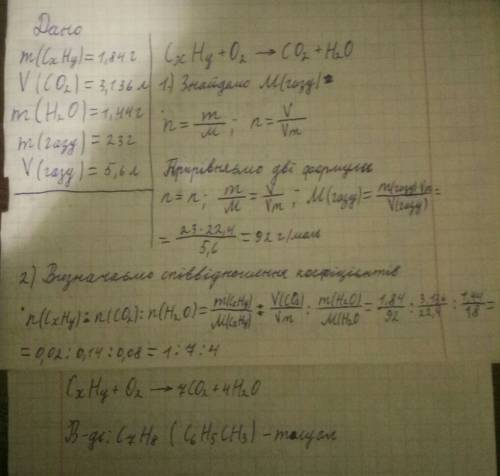 Дано
m(CxHy) = 1,84 г
V(CO2) = 3,136 л
m(H2O) = 1,44 г
m(газу) = 23 г
V(газу) = 5,6 л
CxHy + O2 → CO2 + H2O
1.) Знайдемо M(газу)
n = m/M ; n = V/Vm
Прирівняємо дві формули
n = n ; m/M = V/Vm ; M(газу) = m(газу)·Vm/V(газу) =
= 23·22,4/5,6 = 92 г/моль
2) Визначаємо співвідношення коефіцієнтів
n(CxHy) : n(CO2) : n(H2O) = m(CxHy)/M(CxHy) : V(CO2)/Vm : m(H2O)/M(H2O = 1,84/92 : 3,136/22,4 : 1,44/18 =
= 0,02 : 0,14 : 0,08 = 1 : 7 : 4
CxHy + O2 → 7CO2 + 4H2O
В-дь: C7H8 (C6H5CH3) - толуол